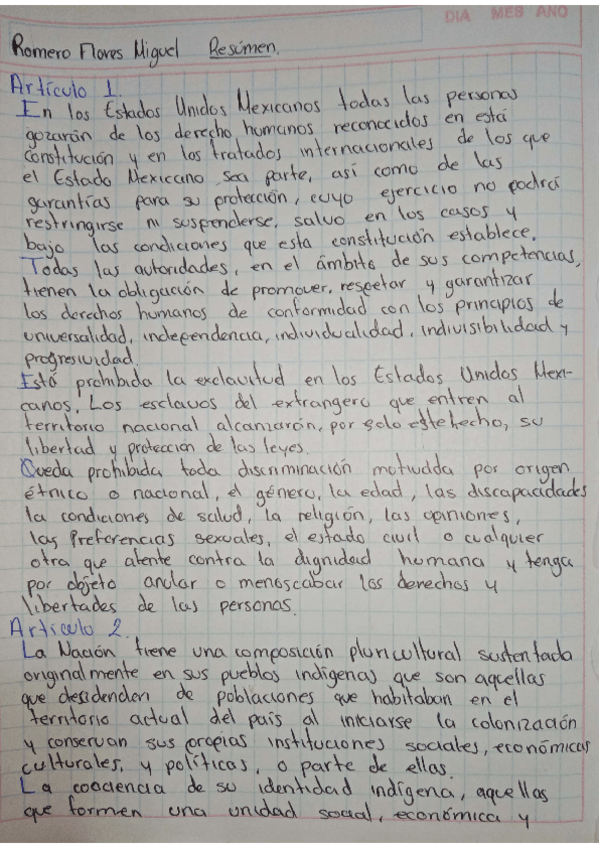 DIA MES AÑO
Romero Flores Miguel Resúmen.
Artículo 1.
En los Estados Unidos Mexicanos todas las personas
gozarán de los derecho humanos reconocidos en está
constitución y en los tratados internacionales de los que
el Estado Mexicano sea parte, así como de las
garantías para su protección, cuyo ejercicio no podrá
restringirse ni suspenderse, salvo en los casos y
bajo las condiciones que esta constitución establece.
Todas las autoridades, en el ámbito de sus competencias,
tienen la obligación de promover, respetar y garantizar
los derechos humanos de conformidad con los principios de
universalidad, independencia, individualidad, indivisibilidad y
progresividad.
Está prohibida la exclavitud en los Estados Unidos Mexi-
canos, Los esclavos del extrangero que entren al
territorio nacional alcanzarón, por solo este hecho, su
libertad y protección de las leyes.
Queda prohibida toda discriminación motivada por origen
étnico o nacional, el género, la edad, las discapacidades
la condiciones de salud, la religión, las opiniones,
las Preferencias sexuales, el estado civil o cualquier
otra que atente contra la dignidad humana y tenga
por objeto anular o menoscabar los derechos y
libertades de las personas.
Artículo 2.
La Nación tiene una composición pluricultural sustentada
originalmente en sus pueblos indígenas que son aquellas
que desidenden de poblaciones que habitaban en el
territorio actual del país al iniciarse la colonización
y conservan sus propias instituciones sociales, económicas
culturales, y políticas, o parte de ellas.
La conciencia de su identidad indígena, aquellas
que formen una unidad social, económica y